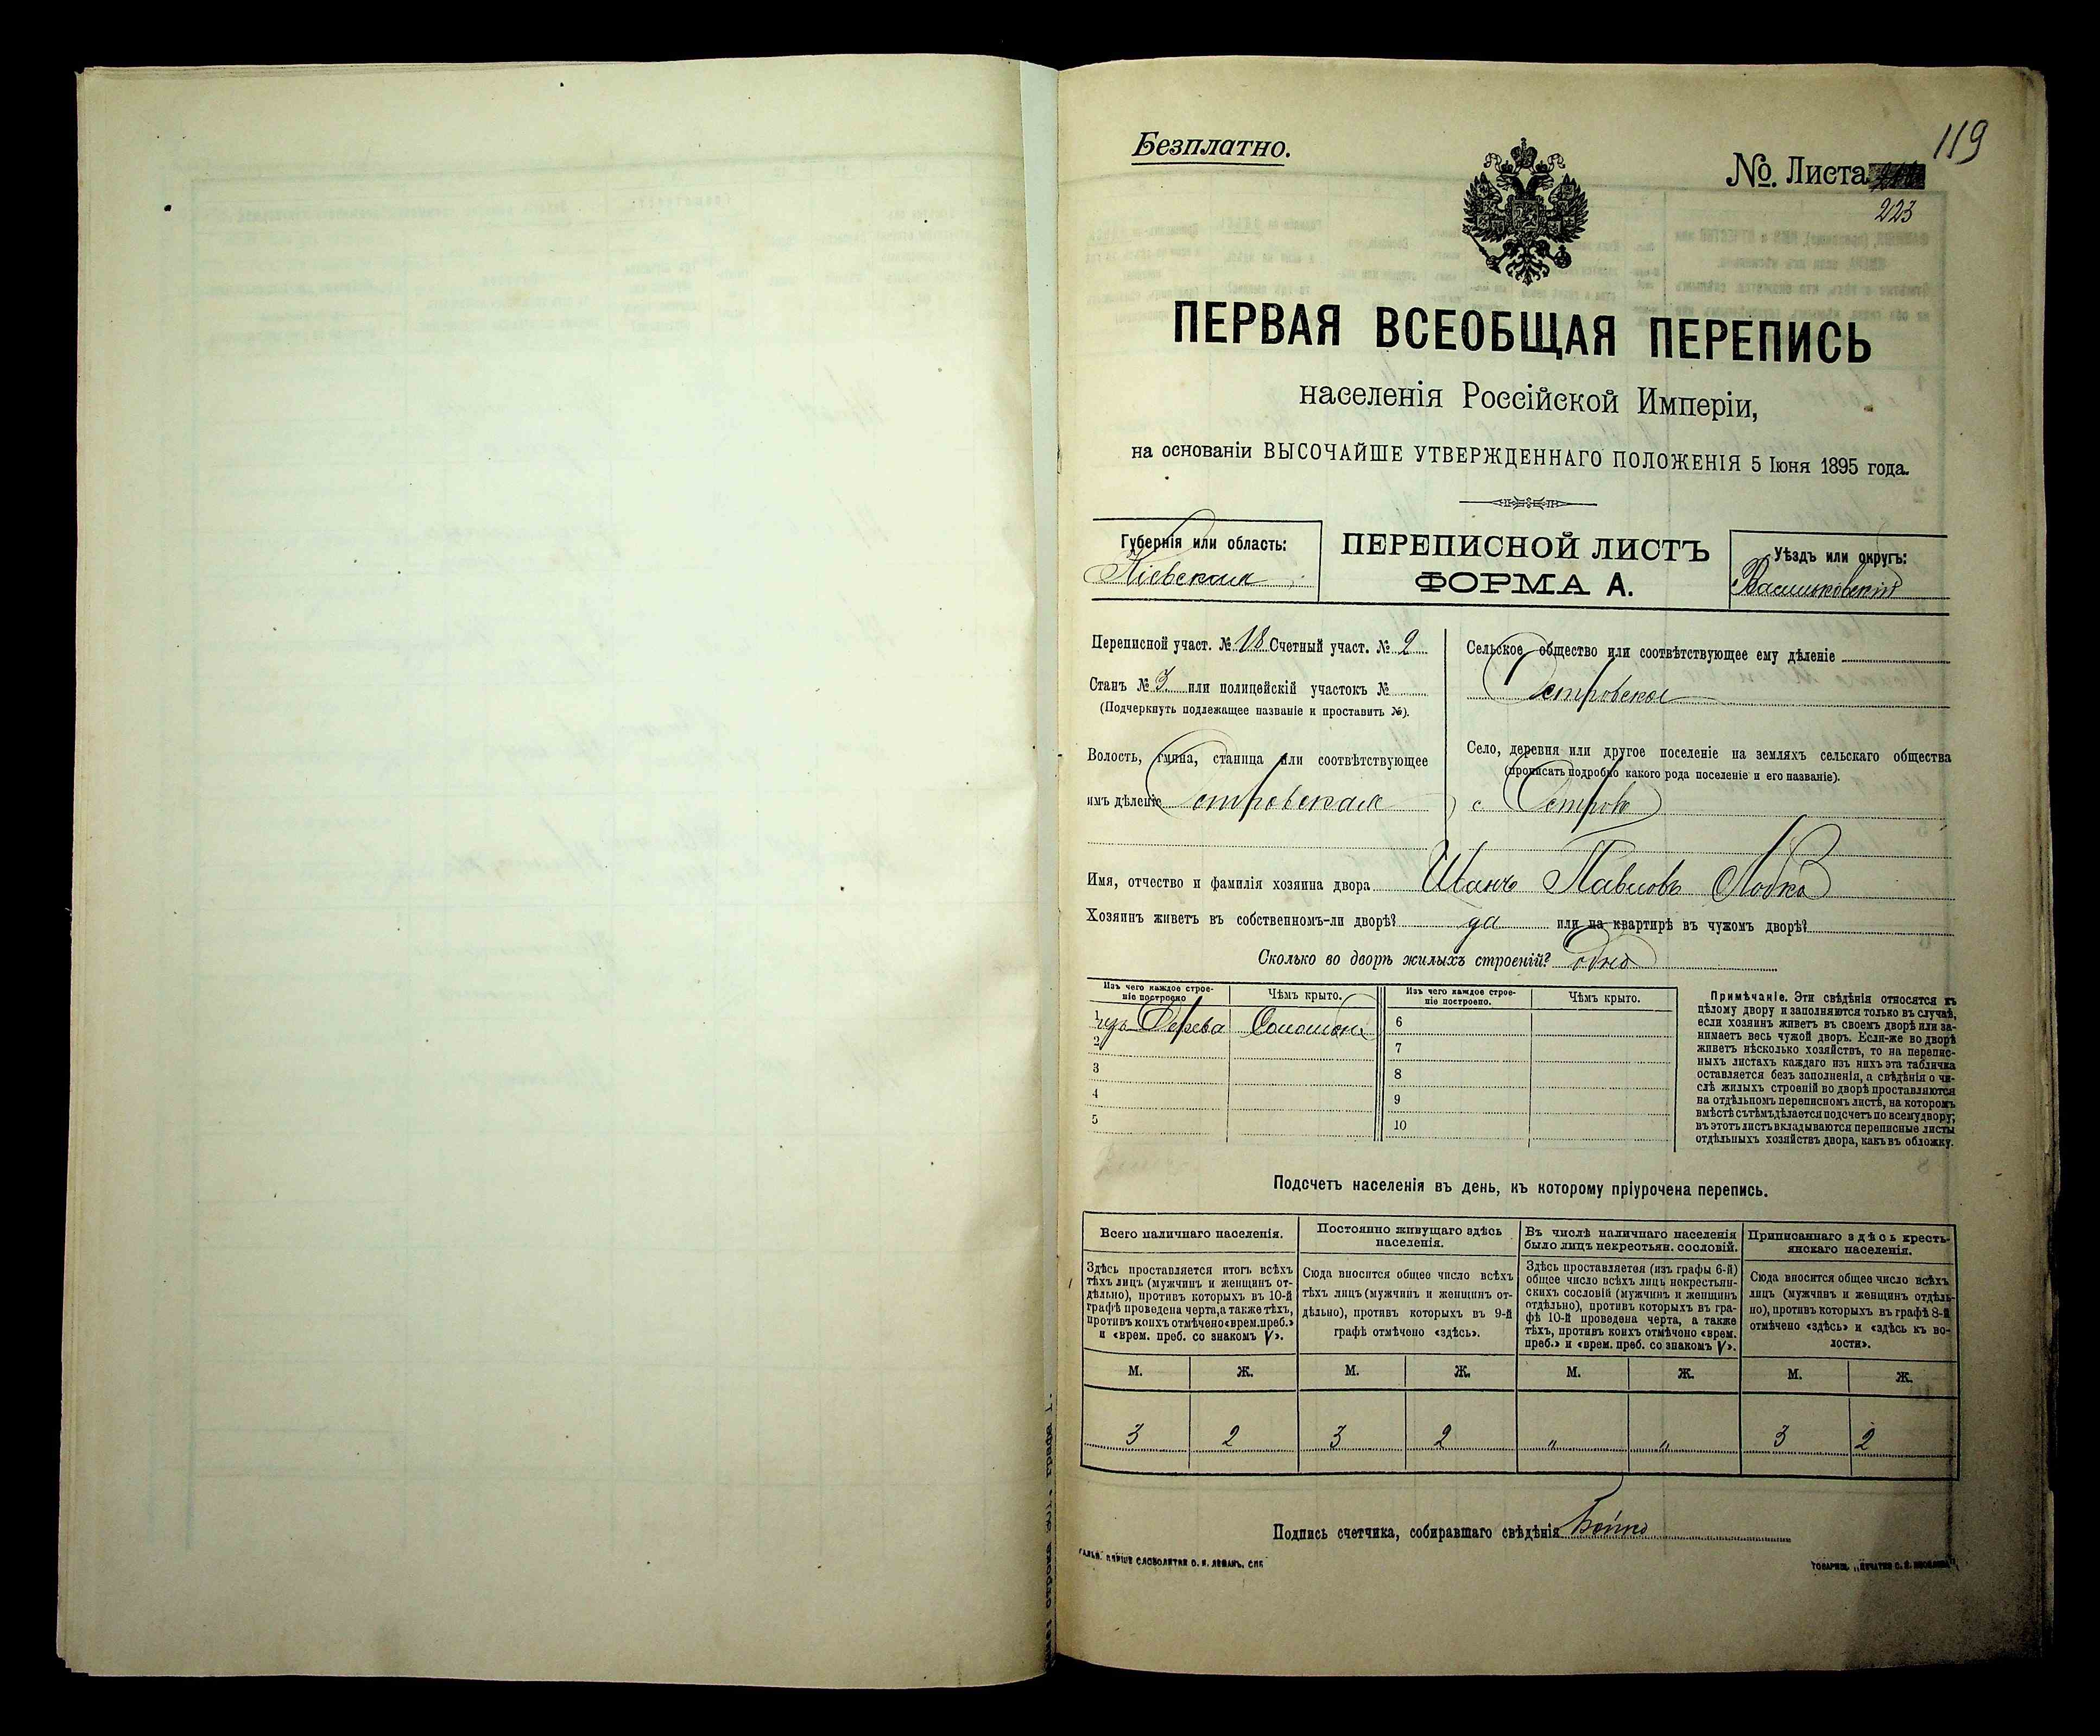 119
Безплатно.
№. Листа
223
ПЕРВАЯ ВСЕОБЩАЯ ПЕРЕПИСЬ
населенія Россійской Имперіи,
на основаніи ВЫСОЧАЙШЕ УТВЕРЖДЕННАГО ПОЛОЖЕНІЯ 5 Іюня 1895 года.
Губернія или область:
Кіевская
ПЕРЕПИСНОЙ ЛИСТЪ
ФОРМА А.
Уѣздъ или округъ:
Васильковскій
Переписной участ. № 18 Счетный участ. № 2
Станъ № 3. или полицейскій участокъ №
(Подчеркнуть подлежащее названіе и проставить №).
Волость, гмина, станица или соотвѣтствующее
имъ дѣленіе Островская
Сельское общество или соотвѣтствующее ему дѣленіе
Островское
Село, деревня или другое поселеніе на земляхъ сельскаго общества
(прописать подробно какого рода поселеніе и его названіе).
с Островъ
Имя, отчество и фамилія хозяина двора Иванъ Павловъ
Хозяинъ живетъ въ собственномъ-ли дворѣ? да или на квартирѣ въ чужомъ дворѣ?
Сколько во дворѣ жилыхъ строеній? одно
Изъ чего каждое строе-
ніе построено
Чѣмъ крыто.
Изъ чего каждое строе-
ніе построено.
Чѣмъ крыто.
1 изъ Дерева Соломою
2
3
4
5
6
7
8
9
10
Примѣчаніе. Эти свѣдѣнія относятся къ
цѣлому двору и заполняются только въ случаѣ,
если хозяинъ живетъ въ своемъ дворѣ или за-
нимаетъ весь чужой дворъ. Если-же во дворѣ
живетъ нѣсколько хозяйствъ, то на перепис-
ныхъ листахъ каждаго изъ нихъ эта табличка
оставляется безъ заполненія, а свѣдѣнія о чи-
слѣ жилыхъ строеній во дворѣ проставляются
на отдѣльномъ переписномъ листѣ, на которомъ
вмѣстѣ съ тѣмъ дѣлается подсчетъ по всему двору;
въ этотъ листъ вкладываются переписные листы
отдѣльныхъ хозяйствъ двора, какъ въ обложку.
Подсчетъ населенія въ день, къ которому пріурочена перепись.
Всего наличнаго населенія.
Здѣсь проставляется итогъ всѣхъ
тѣхъ лицъ (мужчинъ и женщинъ от-
дѣльно), противъ которыхъ въ 10-й
графѣ проведена черта, а также тѣхъ,
противъ коихъ отмѣчено «врем. преб.»
и «врем. преб. со знакомъ V».
Постоянно живущаго здѣсь
населенія.
Сюда вносится общее число всѣхъ
тѣхъ лицъ (мужчинъ и женщинъ от-
дѣльно), противъ которыхъ въ 9-й
графѣ отмѣчено «здѣсь».
Въ числѣ наличнаго населенія
было лицъ некрестьян. сословій.
Здѣсь проставляется (изъ графы 6-й)
общее число всѣхъ лицъ некрестьян-
скихъ сословій (мужчинъ и женщинъ
отдѣльно), противъ которыхъ въ гра-
фѣ 10-й проведена черта, а также
тѣхъ, противъ коихъ отмѣчено «врем.
преб.» и «врем. преб. со знакомъ V».
Приписаннаго здѣсь кресть-
янскаго населенія.
Сюда вносится общее число всѣхъ
лицъ (мужчинъ и женщинъ отдѣль-
но), противъ которыхъ въ графѣ 8-й
отмѣчено «здѣсь» и «здѣсь къ во-
лости».
М. Ж. М. Ж. М. Ж. М. Ж.
3 2 3 2 „ „ 3 2
Подпись счетчика, собиравшаго свѣдѣнія Бойко